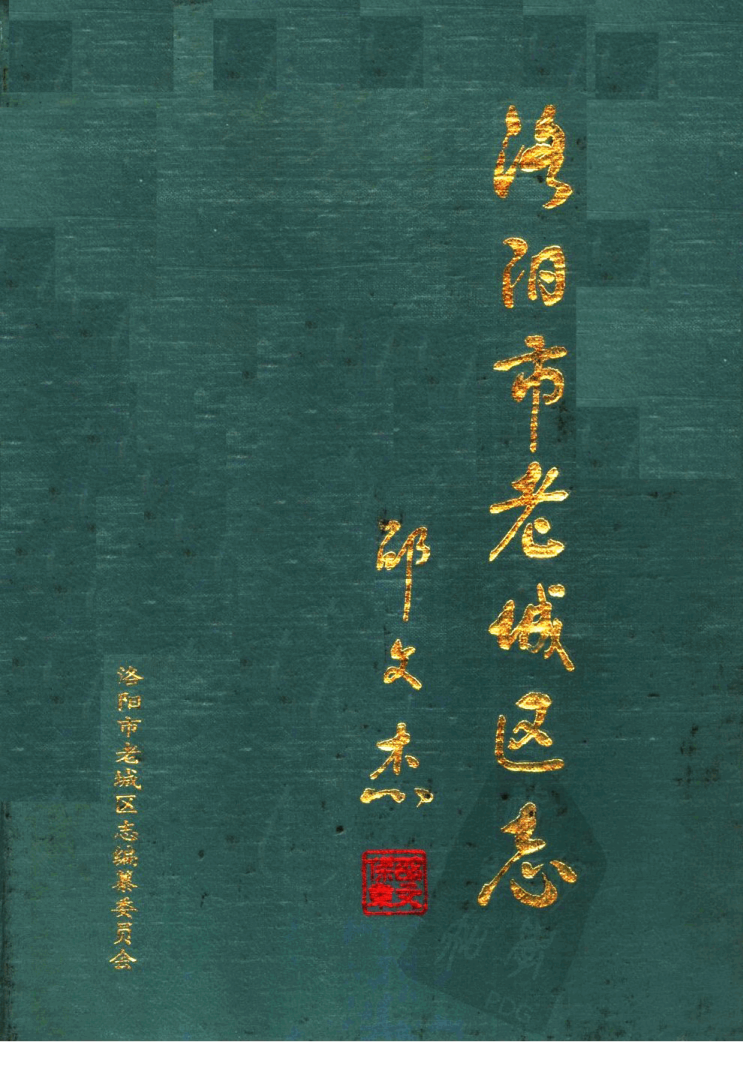 洛阳市老城区志
邵文杰
洛阳市老城区志编纂委员会
PDG